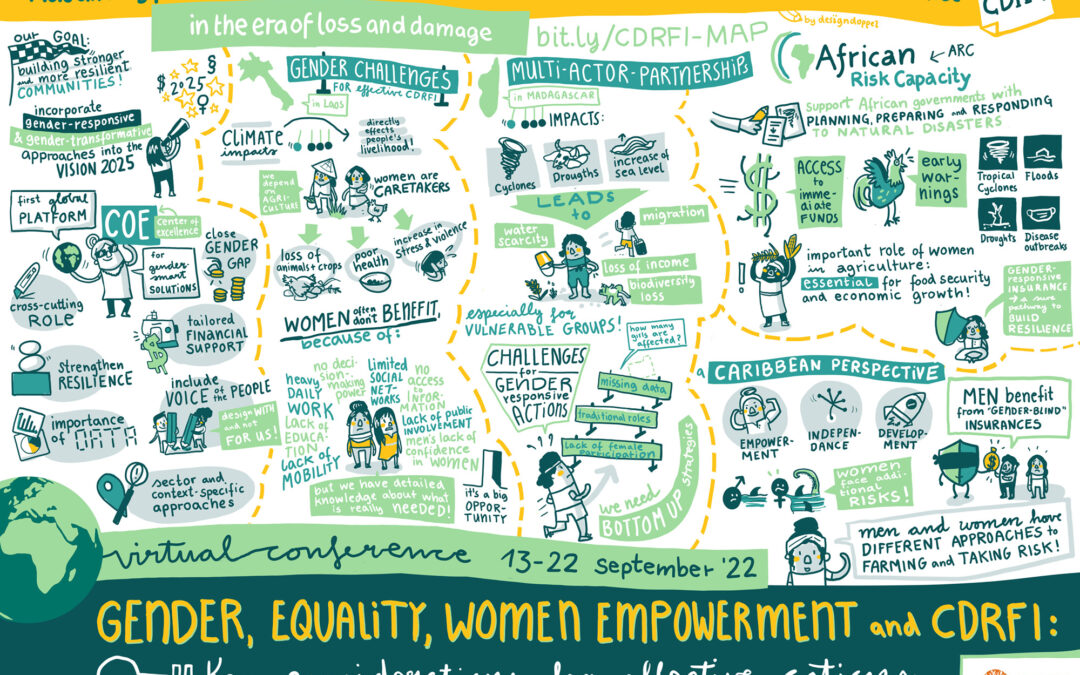 in the era of loss and damage
bit.ly/CDRFI-MAP
by designdoppel
our GOAL:
building stronger
and more resilient
COMMUNITIES!
$ 2025 §
incorporate
gender-responsive
& gender-transformative
approaches into the
VISION 2025
first global
PLATFORM
COE
center of
excellence
for
gender
smart
SOLUTIONS
close
GENDER
GAP
cross-cutting
ROLE
tailored
FINANCIAL
SUPPORT
strengthen
RESILIENCE
include
VOICE of the PEOPLE
design WITH
and not
FOR US!
importance
of DATA
sector and
context-specific
approaches
GENDER CHALLENGES
FOR effective CDRFI
in LAOS
CLIMATE
impacts
directly
effects
people's
livelihood!
we
depend
on
AGRI-
CULTURE
women are
CARETAKERS
loss of
animals + crops
poor
health
increase in
stress & violence
WOMEN often don't BENEFIT,
because of:
heavy
DAILY
WORK
no deci-
sion-
making
power
Limited
SOCIAL
NET-
WORKS
no
access
to
INFOR-
MATION
Lack of
EDUCA-
TION
Lack of
MOBILITY
Lack of public
INVOLVEMENT
men's lack of
confidence
in WOMEN
but we have detailed
knowledge about what
is really NEEDED!
it's a big
OPPOR-
TUNITY
MULTI-ACTOR-PARTNERSHIPs
in MADAGASCAR
IMPACTS:
Cyclones
Drougths
increase of
Sea level
LEADS
to
water
scarcity
migration
loss of income
biodiversity
loss
especially for
VULNERABLE GROUPS!
CHALLENGES
for
GENDER
responsive
ACTIONS
how many
girls are
affected?
missing data
traditional roles
Lack of female
participation
we need
BOTTOM UP strategies
African
Risk Capacity
ARC
support African governments with
PLANNING, PREPARING and RESPONDING
TO NATURAL DISASTERS
ACCESS
to
imme-
diate
FUNDS
early
war-
nings
Tropical
Cyclones
Floods
Droughts
Disease
outbreaks
important role of women
in agriculture:
essential for food security
and economic growth!
GENDER-
RESPONSIVE
INSURANCE
→ a sure
pathway to
BUILD
RESILIENCE
a CARIBBEAN PERSPECTIVE
EMPOWER-
MENT
INDEPEN-
DANCE
DEVELOP-
MENT
MEN benefit
from "GENDER-BLIND"
INSURANCES
women
face addi-
tional
RISKS!
men and women have
DIFFERENT APPROACHES to
FARMING and TAKING RISK!
virtual conference 13-22 september '22
GENDER, EQUALITY, WOMEN EMPOWERMENT and CDRFI: